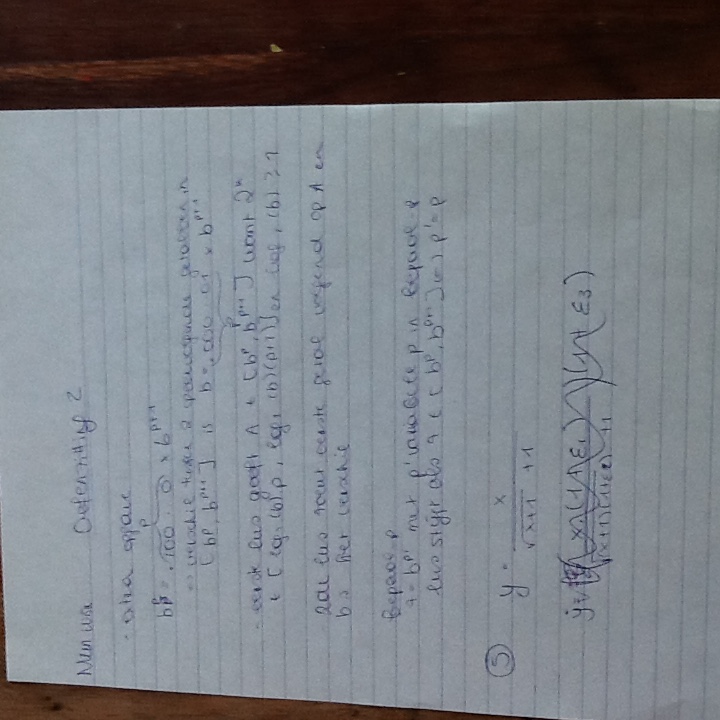 Num wis Oefenzitting 2
- extra opgave
p
b^p = .100..0 × b^{p+1}
=> verschil tussen 2 opeenvolgende getallen in
[b^p, b^{p+1}] is b = .000..01 × b^{p+1}
p
- eerste lus geeft A ∈ [b^p, b^{p+1}] want 2^k
∈ [log_2(b)p, log_2(b)(p+1)] en log_2(b) ≥ 1
2de lus zoekt eerste getal volgend op A en
b is het verschil
Bepaal-p
q = b^{p'} met p' variabele p in bepaal-p
lus stopt als q ∈ [b^p, b^{p+1}] => p' = p
5 y = x / (√(x+1) + 1)
ȳ = (x(1+ε_1) / (√((x+1)(1+ε_2)) + 1))(1+ε_3)